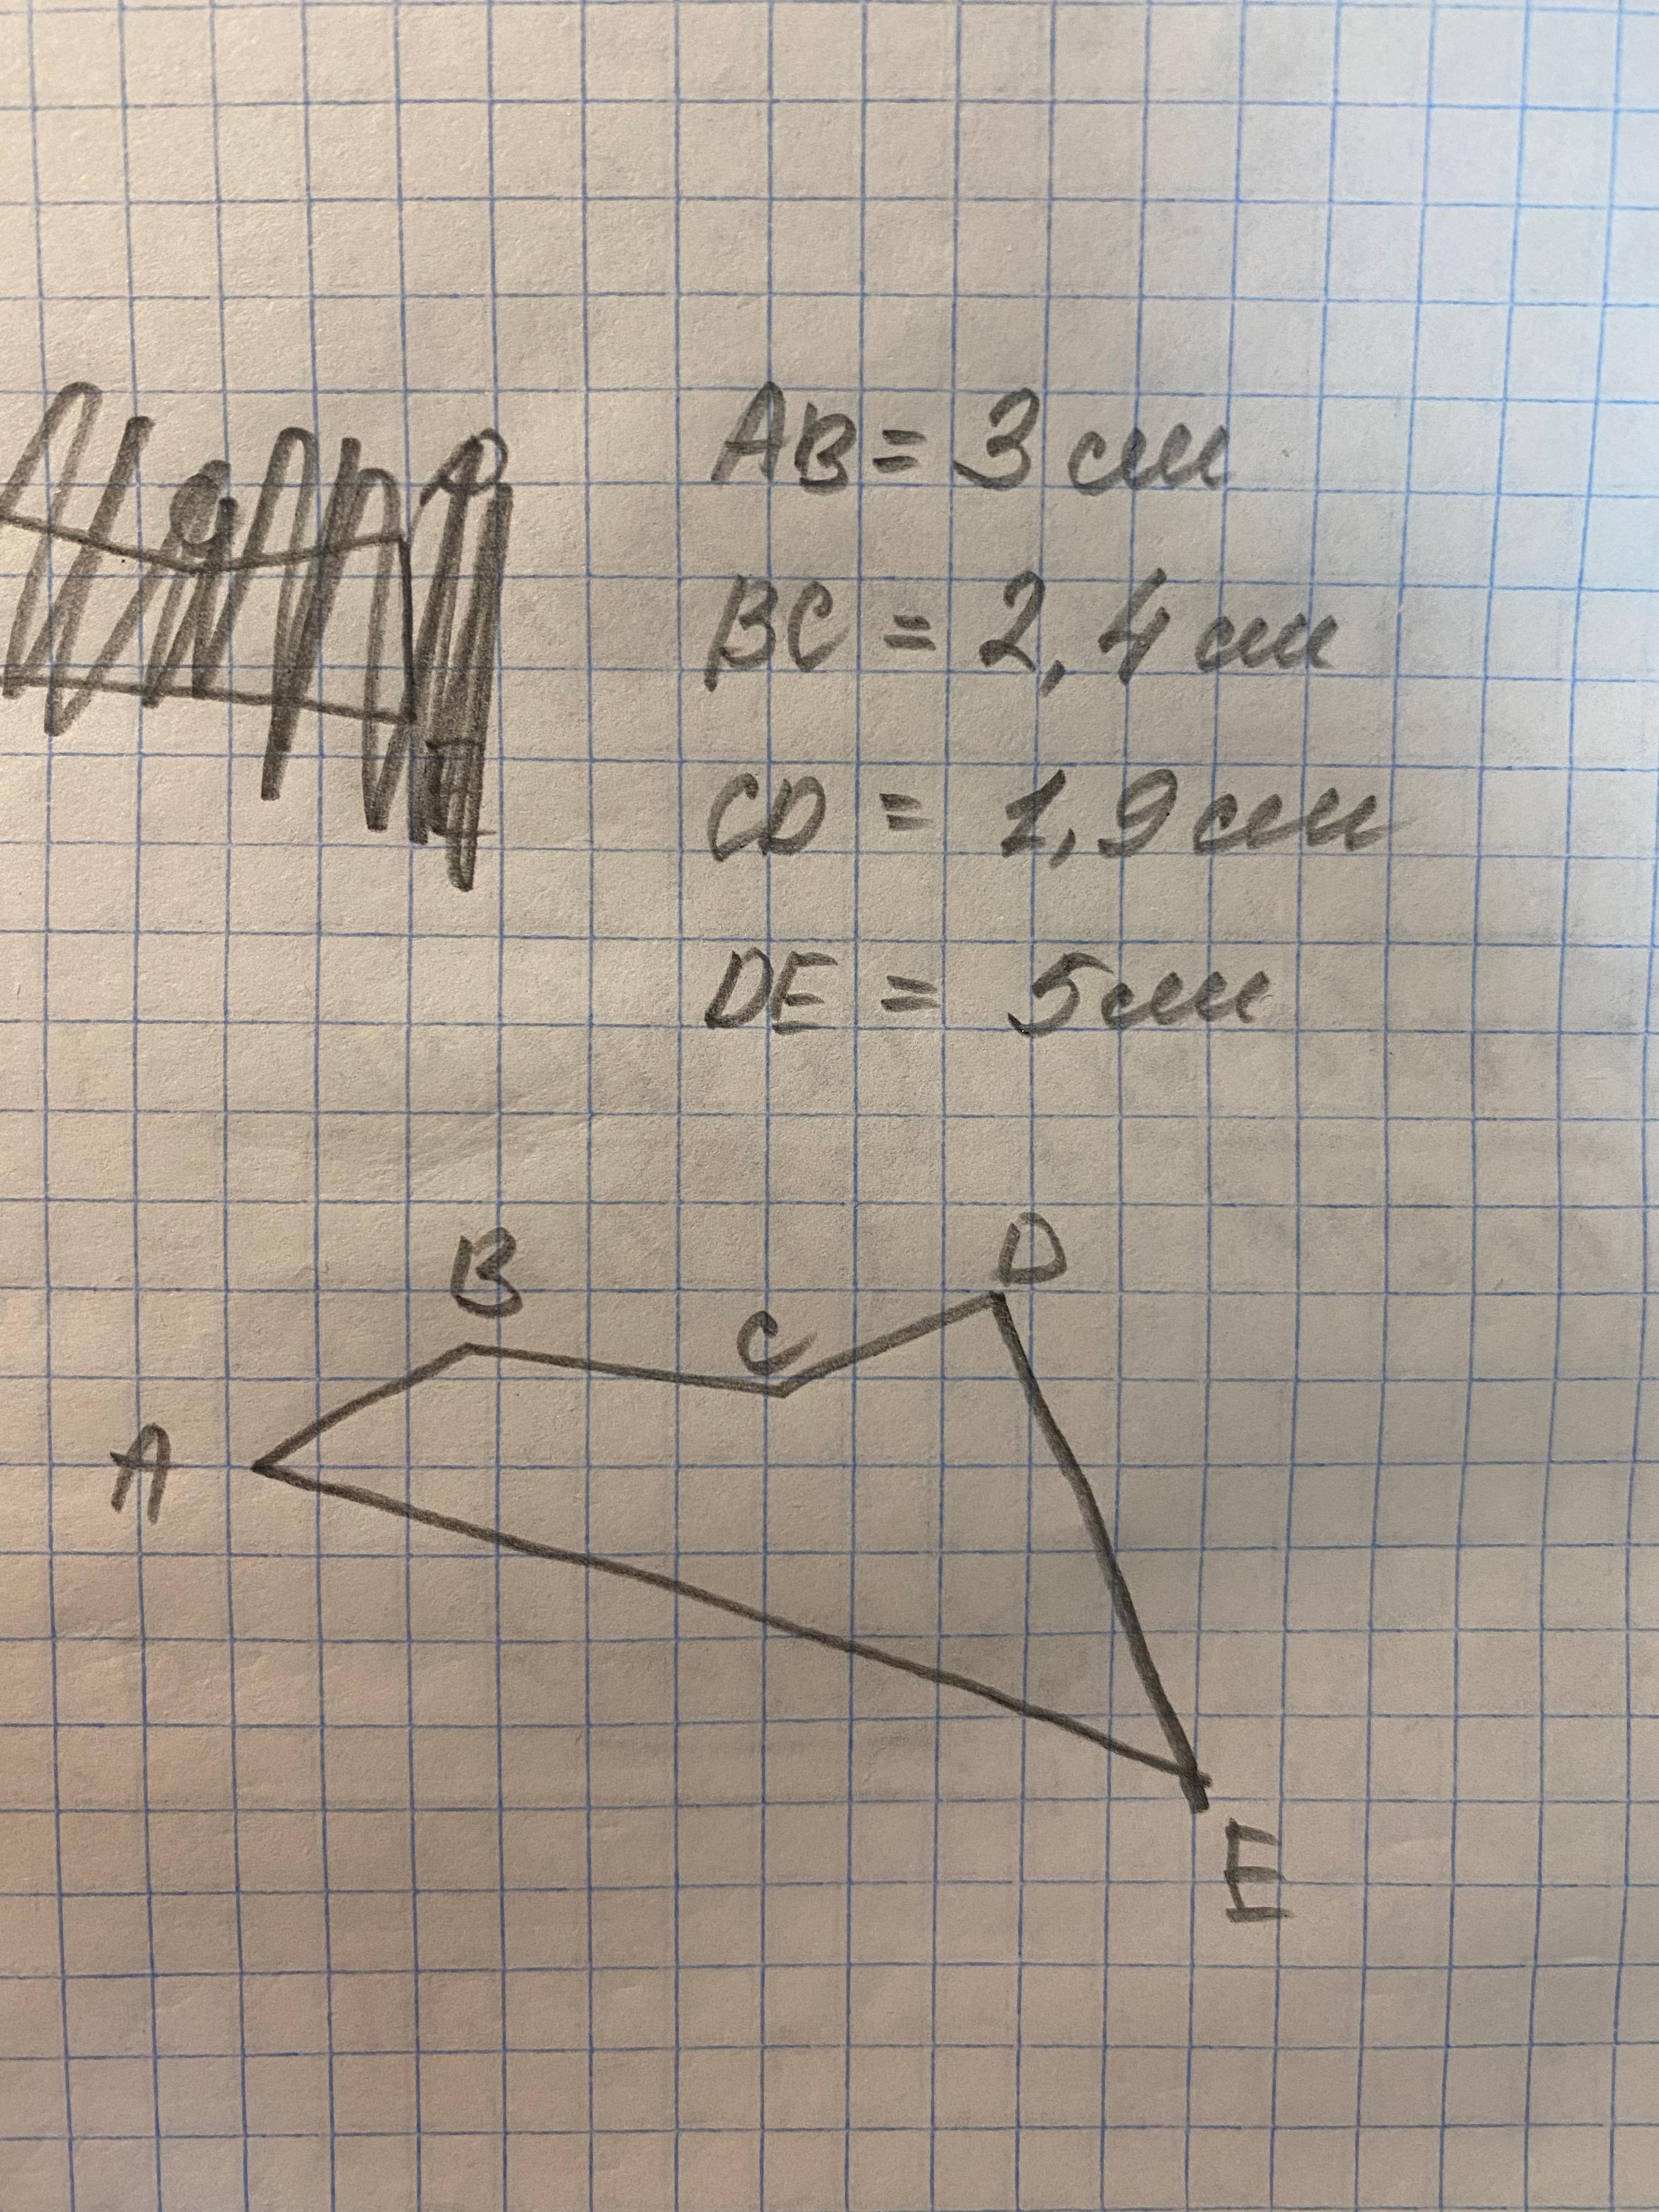 AB = 3 см
BC = 2,4 см
CD = 1,9 см
DE = 5 см
B
D
C
A
E